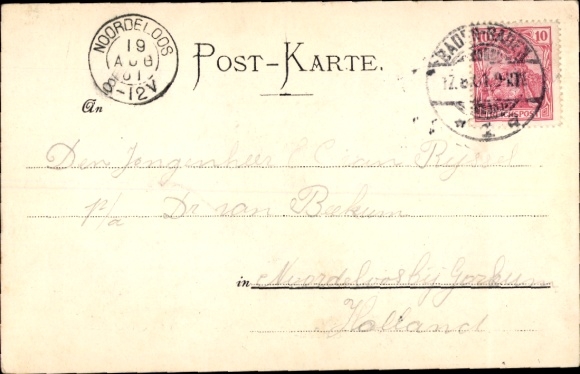 NOORDELOOS
19
AUG
01
8-12V
POST-KARTE.
BADEN-BADEN
17.8.01.9-10
10
REICHSPOST
An
Den Jongenheer C C van
p/a Dr van Beekum
in Noordeloos bij Gorkum
Holland